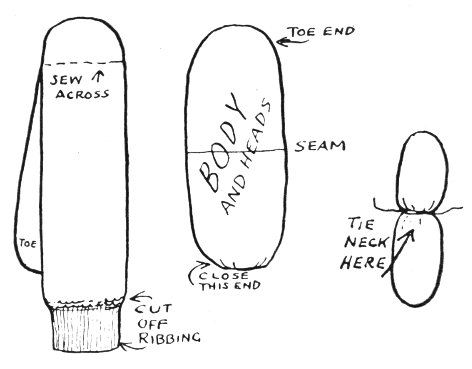 SEW
ACROSS
TOE
CUT
OFF
RIBBING
TOE END
BODY
AND HEADS
SEAM
CLOSE
THIS END
TIE
NECK
HERE